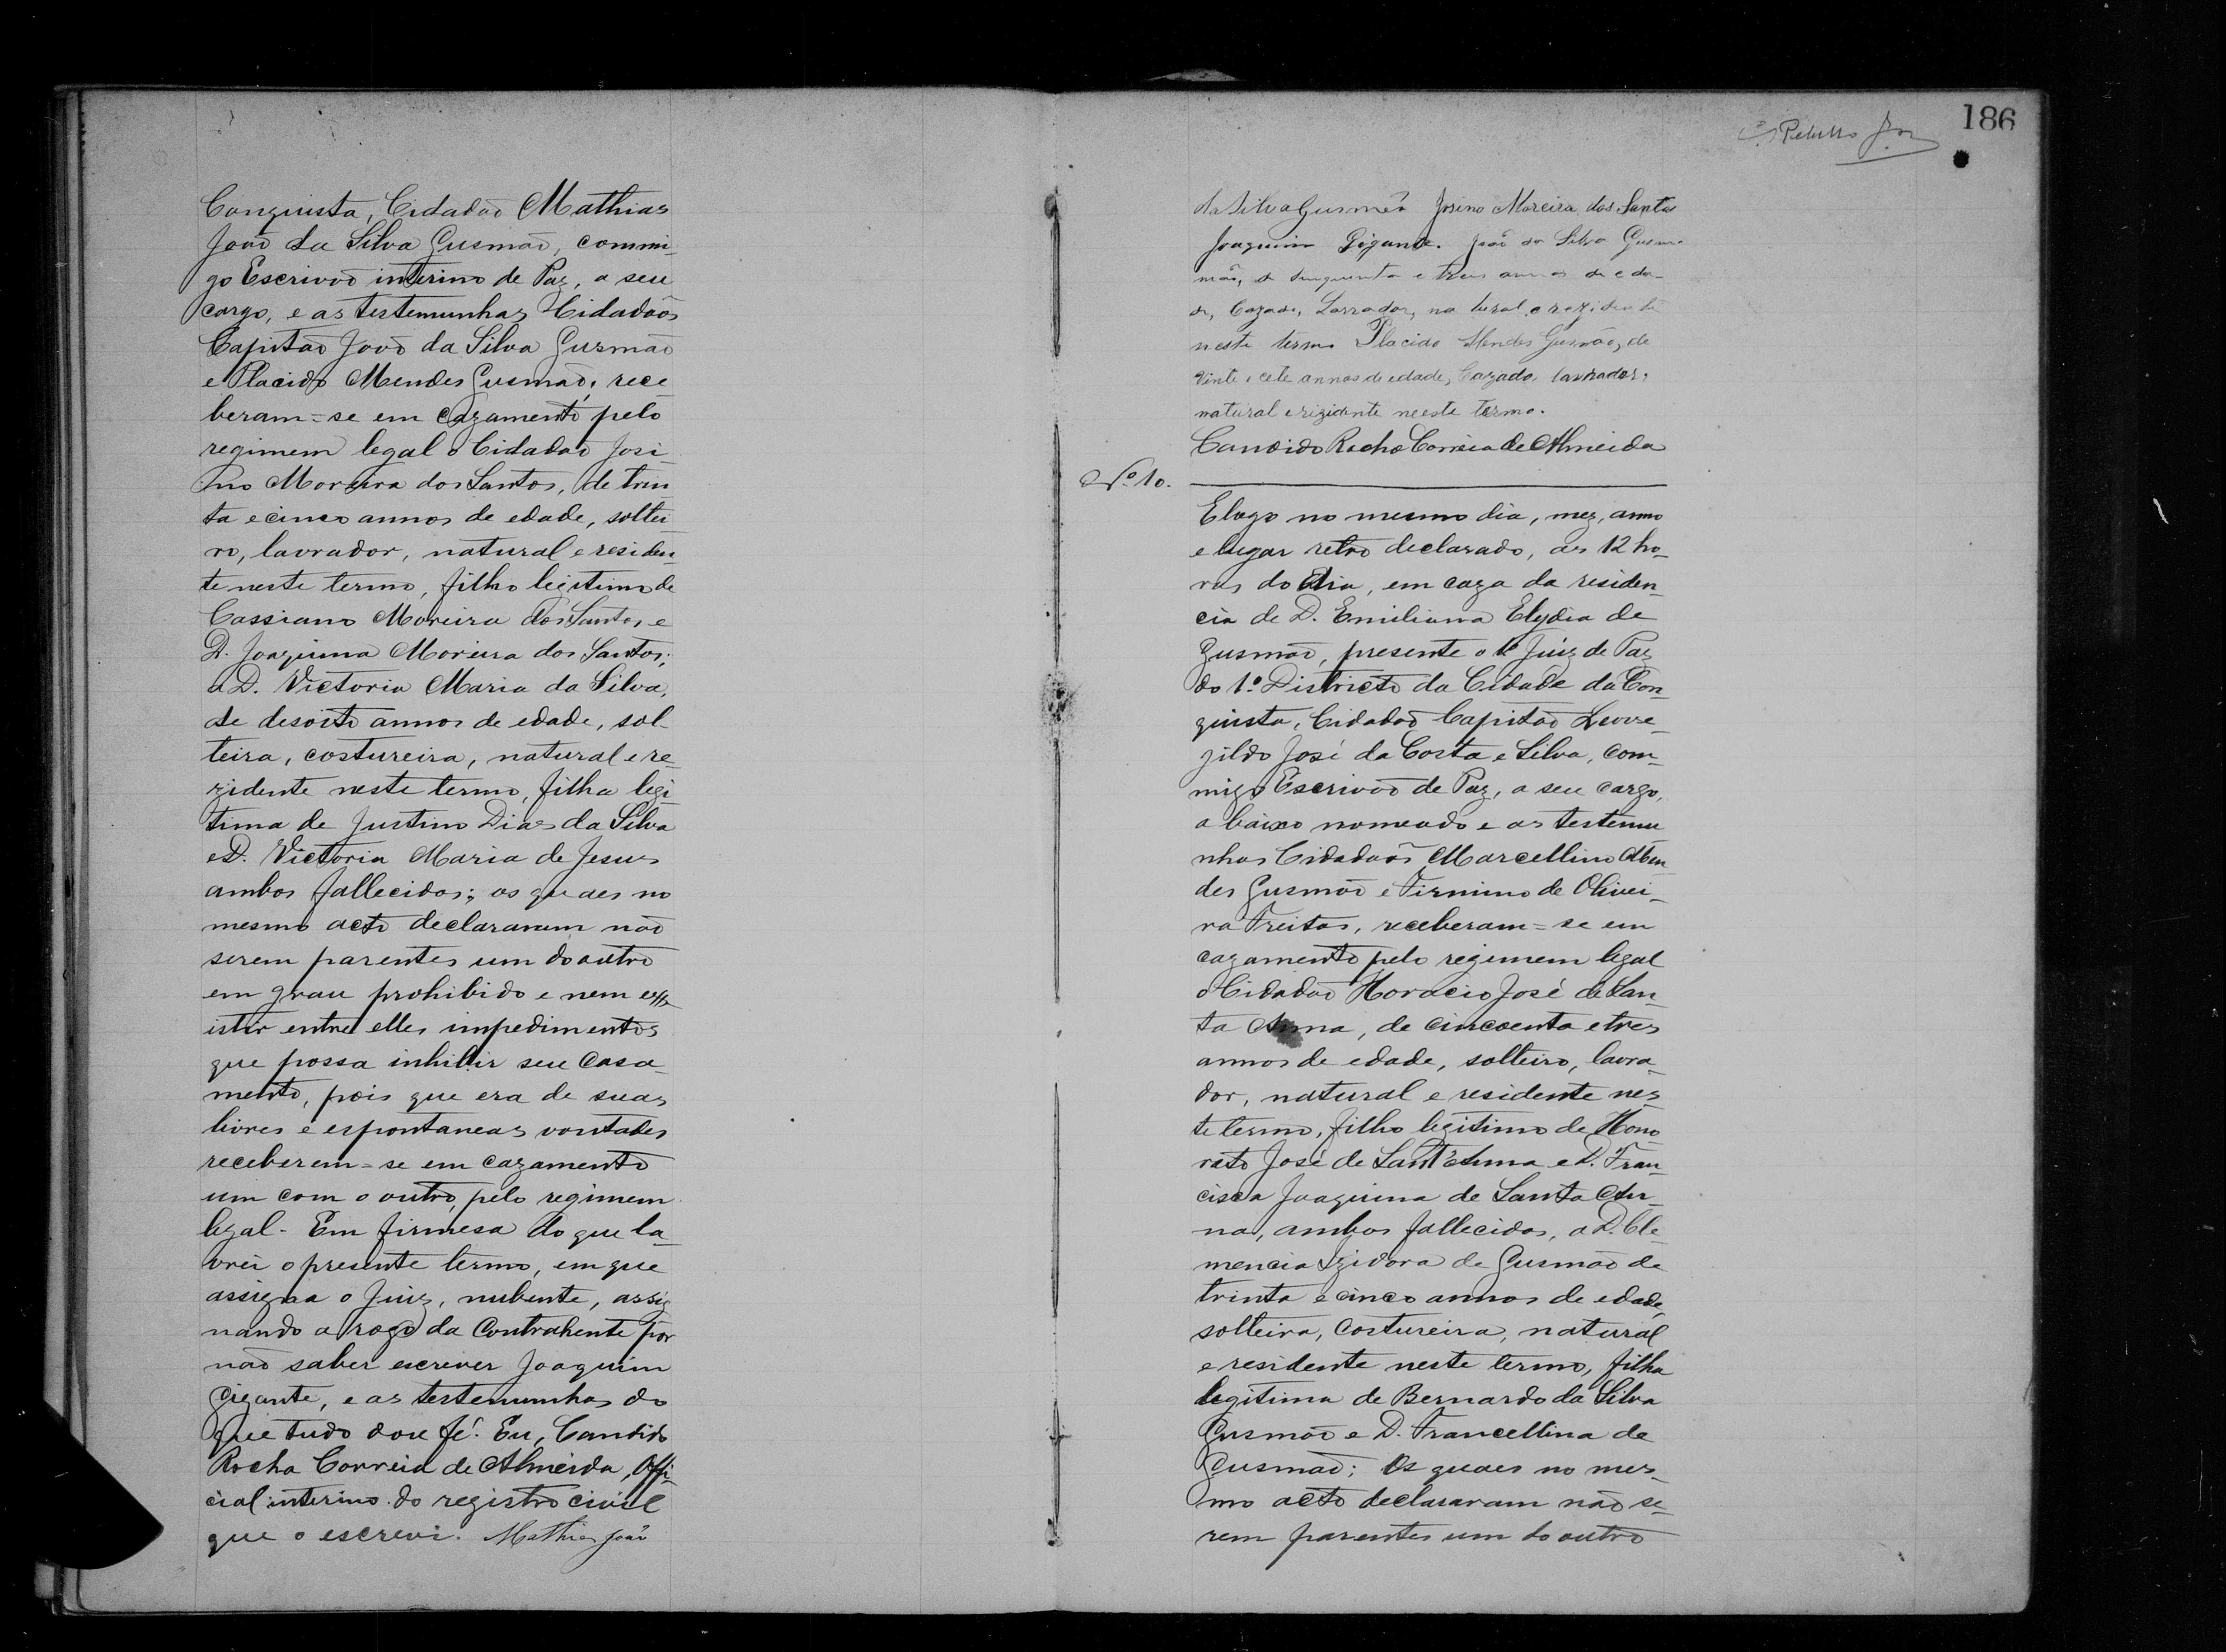 Conquista, Cidadão Mathias
João da Silva Gusmão, commi-
go Escrivão interino de Paz, a seu
cargo, e as testemunhas Cidadãos
Capitão João da Silva Gusmão
e Placido Mendes Gusmão, rece
beram=se em cazamento pelo
regimem legal o Cidadão Josi
no Moreira dos Santos, de trin
ta e cinco annos de edade, soltei
ro, lavrador, natural e residen
te neste termo, filho legitimo de
Cassiano Moreira dos Santos e
D. Joaquina Moreira dos Santos;
a D. Victoria Maria da Silva,
de desoito annos de edade, sol-
teira, costureira, natural e re-
zidente neste termo, filha legi
tima de Justino Dias da Silva
e D. Victoria Maria de Jesus
ambos fallecidos; os quaes no
mesmo acto declararam não
serem parentes um do outro
em grau prohibido e nem ex
istir entre elles impedimentos
que possa inhibir seu casa-
mento, pois que era de suas
livres e espontaneas vontades
receberem=se em cazamento
um com o outro, pelo regimem
legal. Em firmesa do que la-
vrei o presente termo, em que
assigna o Juiz, nubente, assig
nando a rogo da Contrahente por
não saber escrever Joaquim
Gigante, e as testemunhas do
que tudo dou fé. Eu, Candido
Rocha Correia de Almeida, Offi-
cial interino do registro civil
que o escrevi. Mathias João
186
da Silva Gusmão Josino Moreira dos Santos
Joaquim Gigante. João da Silva Gusm-
mão, de sinquenta e treis annos de eda-
de, Cazado, Lavrador, natural e rezidente
neste termo Placido Mendes Gusmão, de
vinte e cete annos de edade, Cazado, lavrador,
natural e rizidente neeste termo.
Candido Rocha Correia de Almeida
Nº 10.
E logo no mesmo dia, mez, anno
e lugar retro declarado, as 12 ho-
ras do dia, em caza da residen-
cia de D. Emiliana Elydia de
Gusmão, presente o 1º Juiz de Paz
do 1º Districto da Cidade da Con-
quista, Cidadão Capitão Leove-
gildo José da Costa e Silva, com-
migo Escrivão de Paz, a seu cargo,
abaixo nomeado e as testemu
nhas Cidadãos Marcellino Men
des Gusmão e Firmino de Olivei-
ra Freitas, receberam=se em
cazamento pelo regimem legal
o Cidadão Horacio José de San-
ta Anna, de cincoenta e tres
annos de edade, solteiro, lavra-
dor, natural e residente nes-
te termo, filho legitimo de Hono
rato José de Sant'Anna e D. Fran-
cisca Joaquina de Santa An-
na, ambos fallecidos, a D. Cle-
mencia Izidora de Gusmão de
trinta e cinco annos de edade,
solteira, costureira, natural
e residente neste termo, filha
legitima de Bernardo da Silva
Gusmão e D. Francellina de
Gusmão; Os quaes no mes-
mo acto declararam não se-
rem parentes um do outro